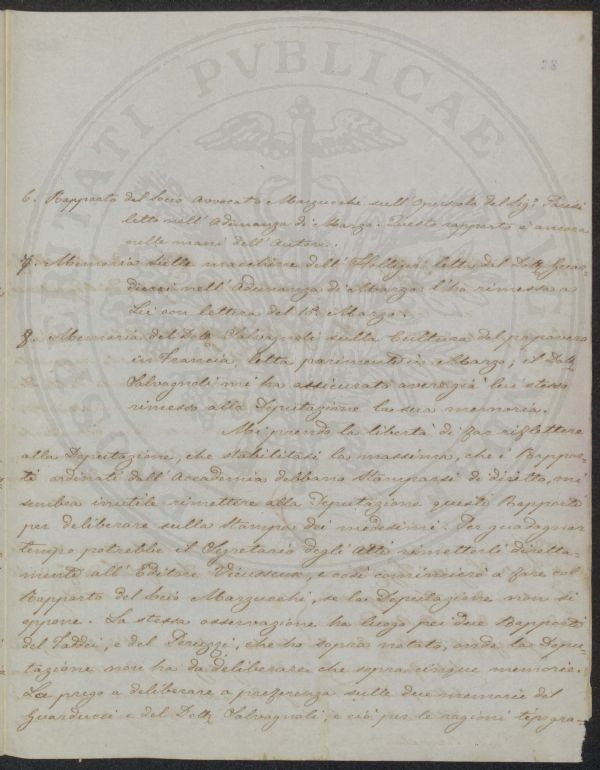 38
6. Rapporto del Socio Avvocato Marzucchi sull'Opuscolo del Sig.r
letto nell'Adunanza di Marzo. Questo rapporto è ancora
nelle mani dell'Autore.
7. Memoria sulle macchine dell' letta dal Dott. Guar-
ducci nell'Adunanza di Marzo: l'ha rimessa a
Lei con lettera del Marzo.
8. Memoria del Dott. Salvagnoli sulla Cultura del papavero
in Francia, letta parimente in Marzo; il Dott.
Salvagnoli mi ha assicurato avere già lui stesso
rimesso alla Deputazione la sua memoria.
Mi prendo la libertà di far riflettere
alla Deputazione, che stabilitasi la massima, che i Rappor-
ti ordinati dall'Accademia debbano stamparsi di diritto, mi
sembra inutile rimettere alla Deputazione questi Rapporti
per deliberare sulla stampa dei medesimi. Per guadagnar
tempo potrebbe il Segretario degli Atti rimetterli diretta-
mente all'Editore Vieusseux, e così comincierò a fare col
Rapporto del Socio Marzucchi, se la Deputazione non si
oppone. La stessa osservazione ha luogo pei due Rapporti
del Taddei, e del Peruzzi, che ho sopra notato, onde la Depu-
tazione non ha da deliberare che sopra cinque memorie.
La prego a deliberare a preferenza sulle due memorie del
Guarducci e del Dott. Salvagnoli, e ciò per le ragioni tipogra-
PROSPERITATI PVBLICAE AVGENDAE